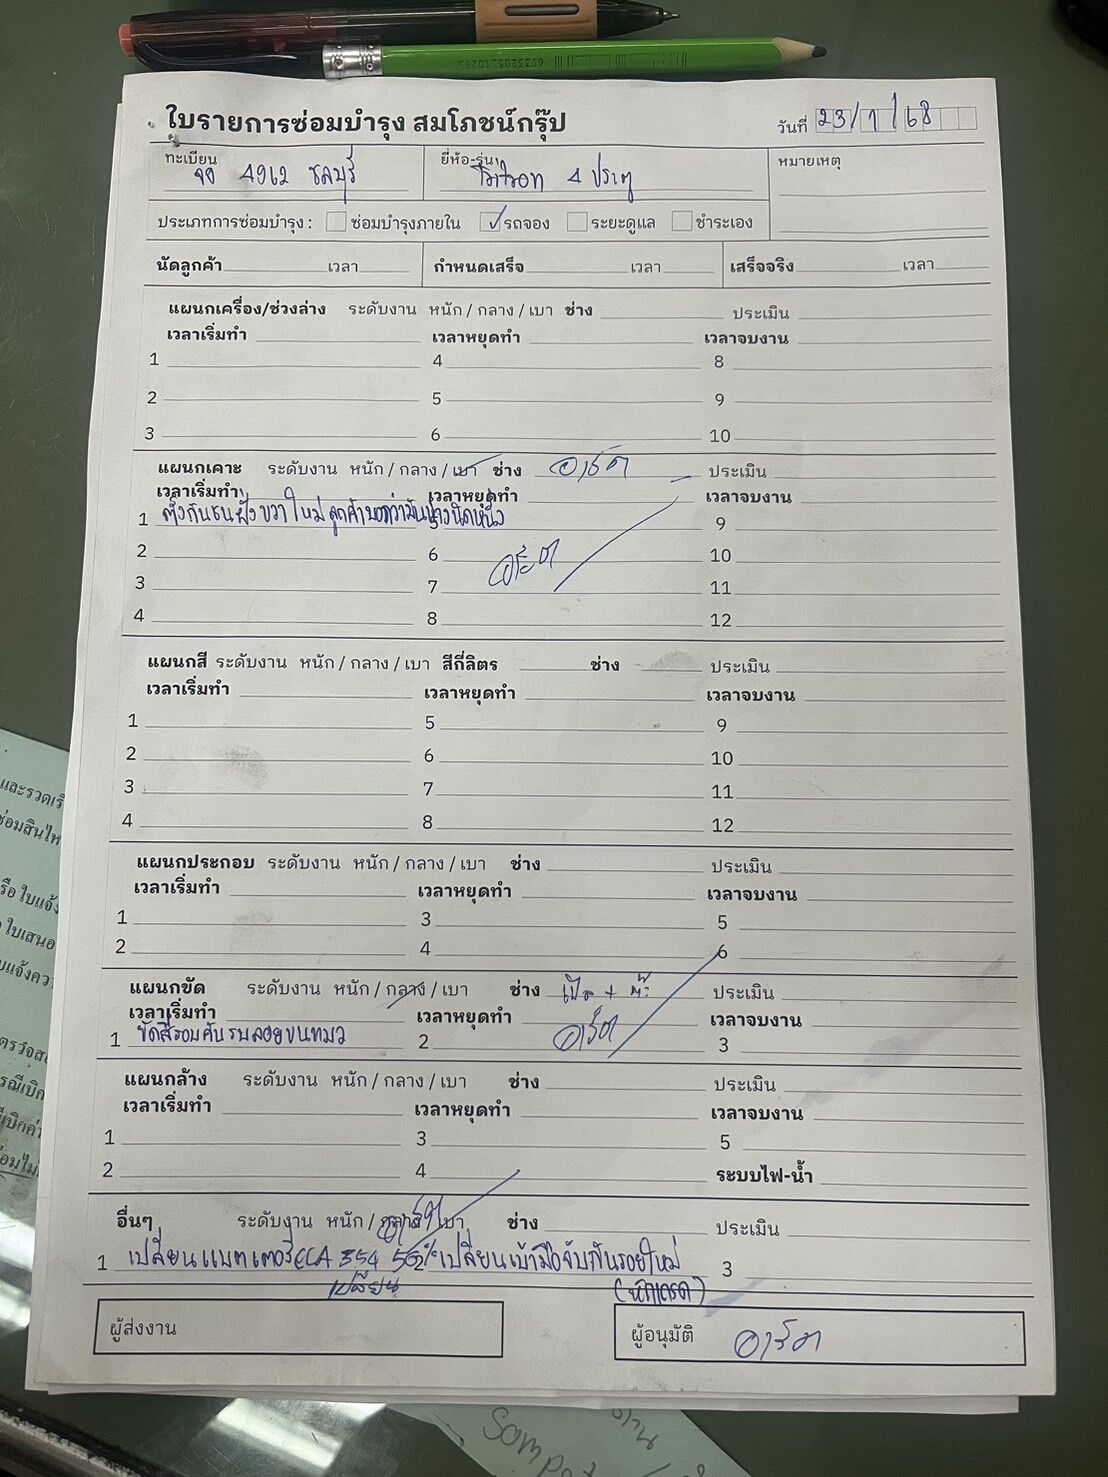 ใบรายการซ่อมบำรุง สมโภชน์กรุ๊ป
วันที่ 23/1/68
ทะเบียน 4912 ชลบุรี
ยี่ห้อ-รุ่น Triton 4 ประตู
หมายเหตุ
ประเภทการซ่อมบำรุง : ซ่อมบำรุงภายใน รถจอง ระยะดูแล ชำระเอง
นัดลูกค้า เวลา กำหนดเสร็จ เวลา เสร็จจริง เวลา
แผนกเครื่อง/ช่วงล่าง ระดับงาน หนัก / กลาง / เบา ช่าง ประเมิน
เวลาเริ่มทำ เวลาหยุดทำ เวลาจบงาน
1 4 8
2 5 9
3 6 10
แผนกเคาะ ระดับงาน หนัก / กลาง / เบา ช่าง อาร์ต ประเมิน
เวลาเริ่มทำ เวลาหยุดทำ เวลาจบงาน
1 ตั้งกันชนฝั่งขวาใหม่ ลูกค้าบอกว่ามันห่างนิดหนึ่ง 9
2 6 10
3 7 11
4 8 12
แผนกสี ระดับงาน หนัก / กลาง / เบา สีกี่ลิตร ช่าง ประเมิน
เวลาเริ่มทำ เวลาหยุดทำ เวลาจบงาน
1 5 9
2 6 10
3 7 11
4 8 12
แผนกประกอบ ระดับงาน หนัก / กลาง / เบา ช่าง ประเมิน
เวลาเริ่มทำ เวลาหยุดทำ เวลาจบงาน
1 3 5
2 4 6
แผนกขัด ระดับงาน หนัก / กลาง / เบา ช่าง ประเมิน
เวลาเริ่มทำ เวลาหยุดทำ อาร์ต เวลาจบงาน
1 ขัดสีรอบคันรบลอยขนแมว 2 3
แผนกล้าง ระดับงาน หนัก / กลาง / เบา ช่าง ประเมิน
เวลาเริ่มทำ เวลาหยุดทำ เวลาจบงาน
1 3 5
2 4 ระบบไฟ-น้ำ
อื่นๆ ระดับงาน หนัก / กลาง / เบา ช่าง ประเมิน
1 เปลี่ยนแบตเตอรี่ CCA 354 2 เปลี่ยนเบ้ามือจับกันรอยใหม่ 3
เปลี่ยน
ผู้ส่งงาน
ผู้อนุมัติ อาร์ต